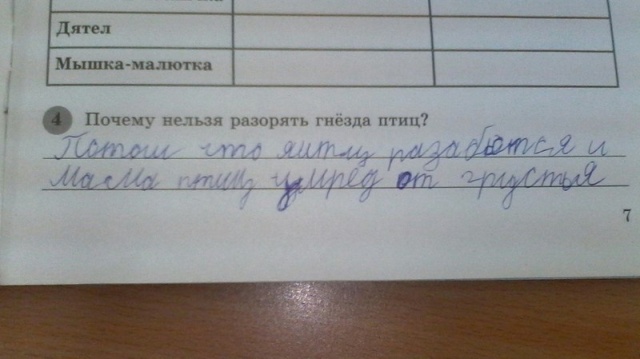 Дятел
Мышка-малютка
4 Почему нельзя разорять гнёзда птиц?
Потом что яитцы разабьются и
мама птиц умрёд от грустья
7